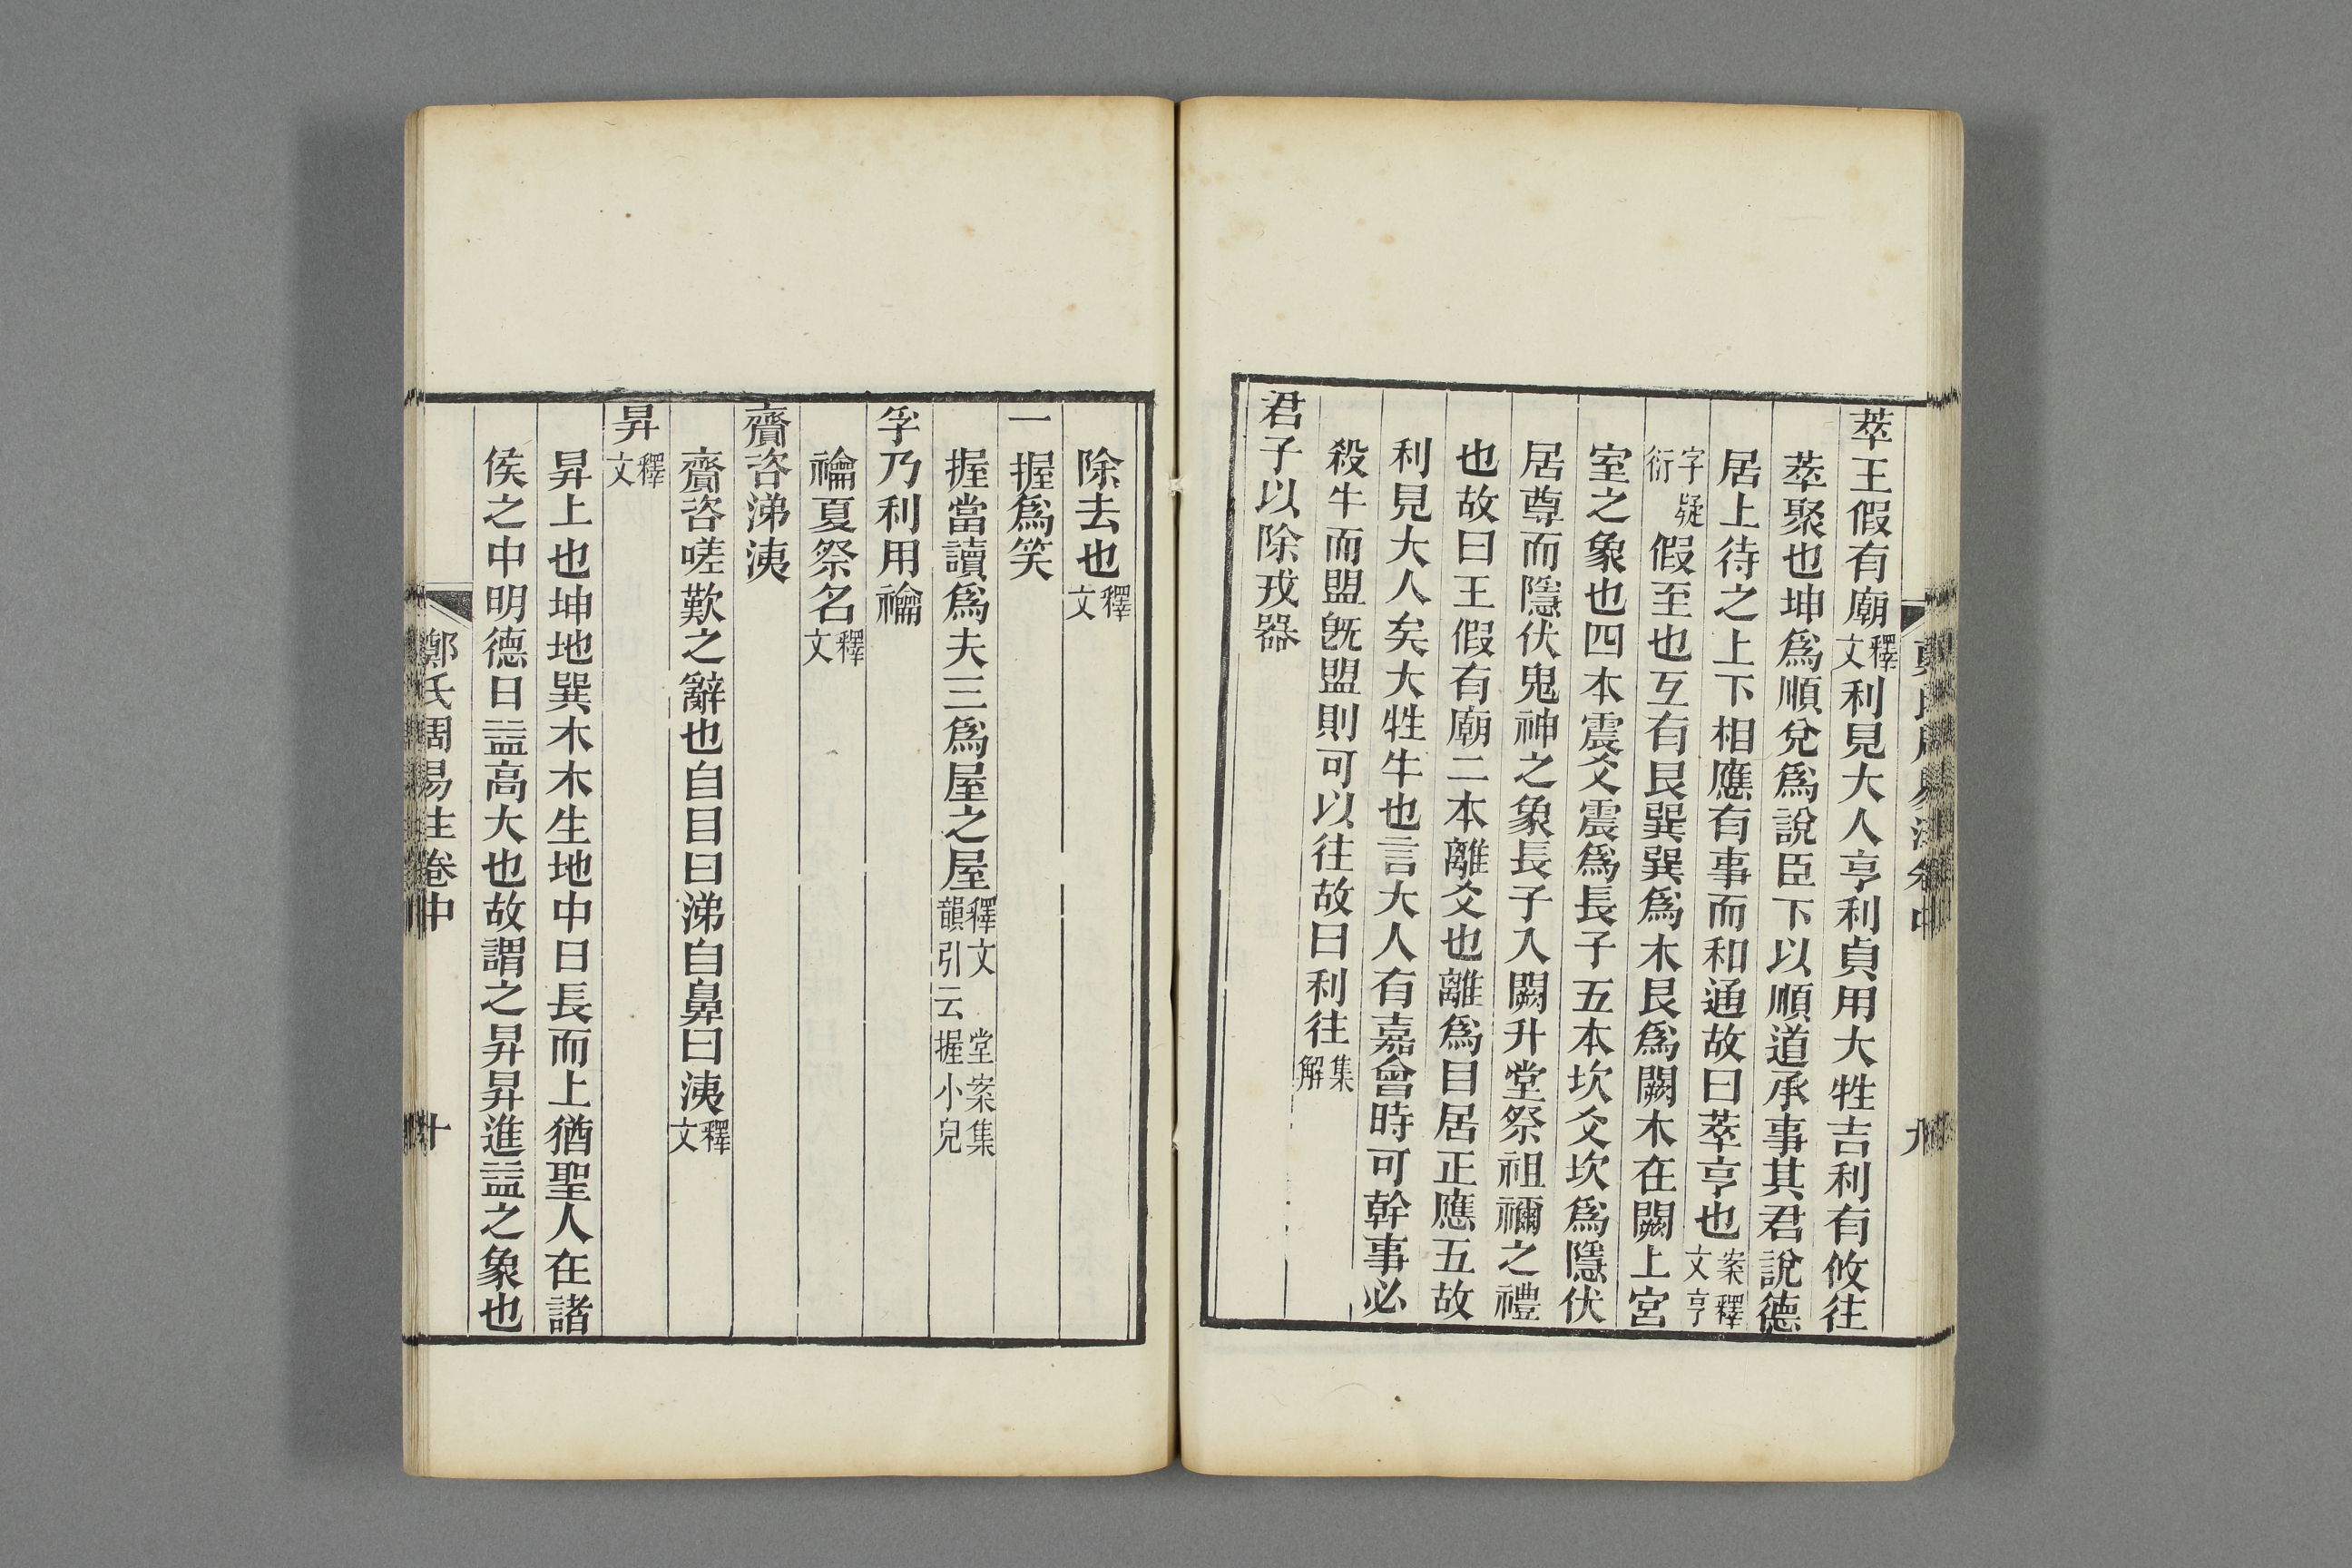 萃王假有廟釋文利見大人亨利貞用大牲吉利有攸往
萃聚也坤爲順兌爲說臣下以順道承事其君說德
居上待之上下相應有事而和通故曰萃亨也案釋文亨
字疑衍假至也互有艮巽巽爲木艮爲闕木在闕上宮
室之象也四本震爻震爲長子五本坎爻坎爲隱伏
居尊而隱伏鬼神之象長子入闕升堂祭祖禰之禮
也故曰王假有廟二本離爻也離爲目居正應五故
利見大人矣大牲牛也言大人有嘉會時可幹事必
殺牛而盟旣盟則可以往故曰利往集解
君子以除戎器
除去也釋文
一握爲笑
握當讀爲夫三爲屋之屋釋文 堂案集韻引云握小兒
孚乃利用禴
禴夏祭名釋文
齎咨涕洟
齎咨嗟歎之辭也自目曰涕自鼻曰洟釋文
昇釋文
昇上也坤地巽木木生地中日長而上猶聖人在諸
侯之中明德日益高大也故謂之昇昇進益之象也
鄭氏周易注卷中 十